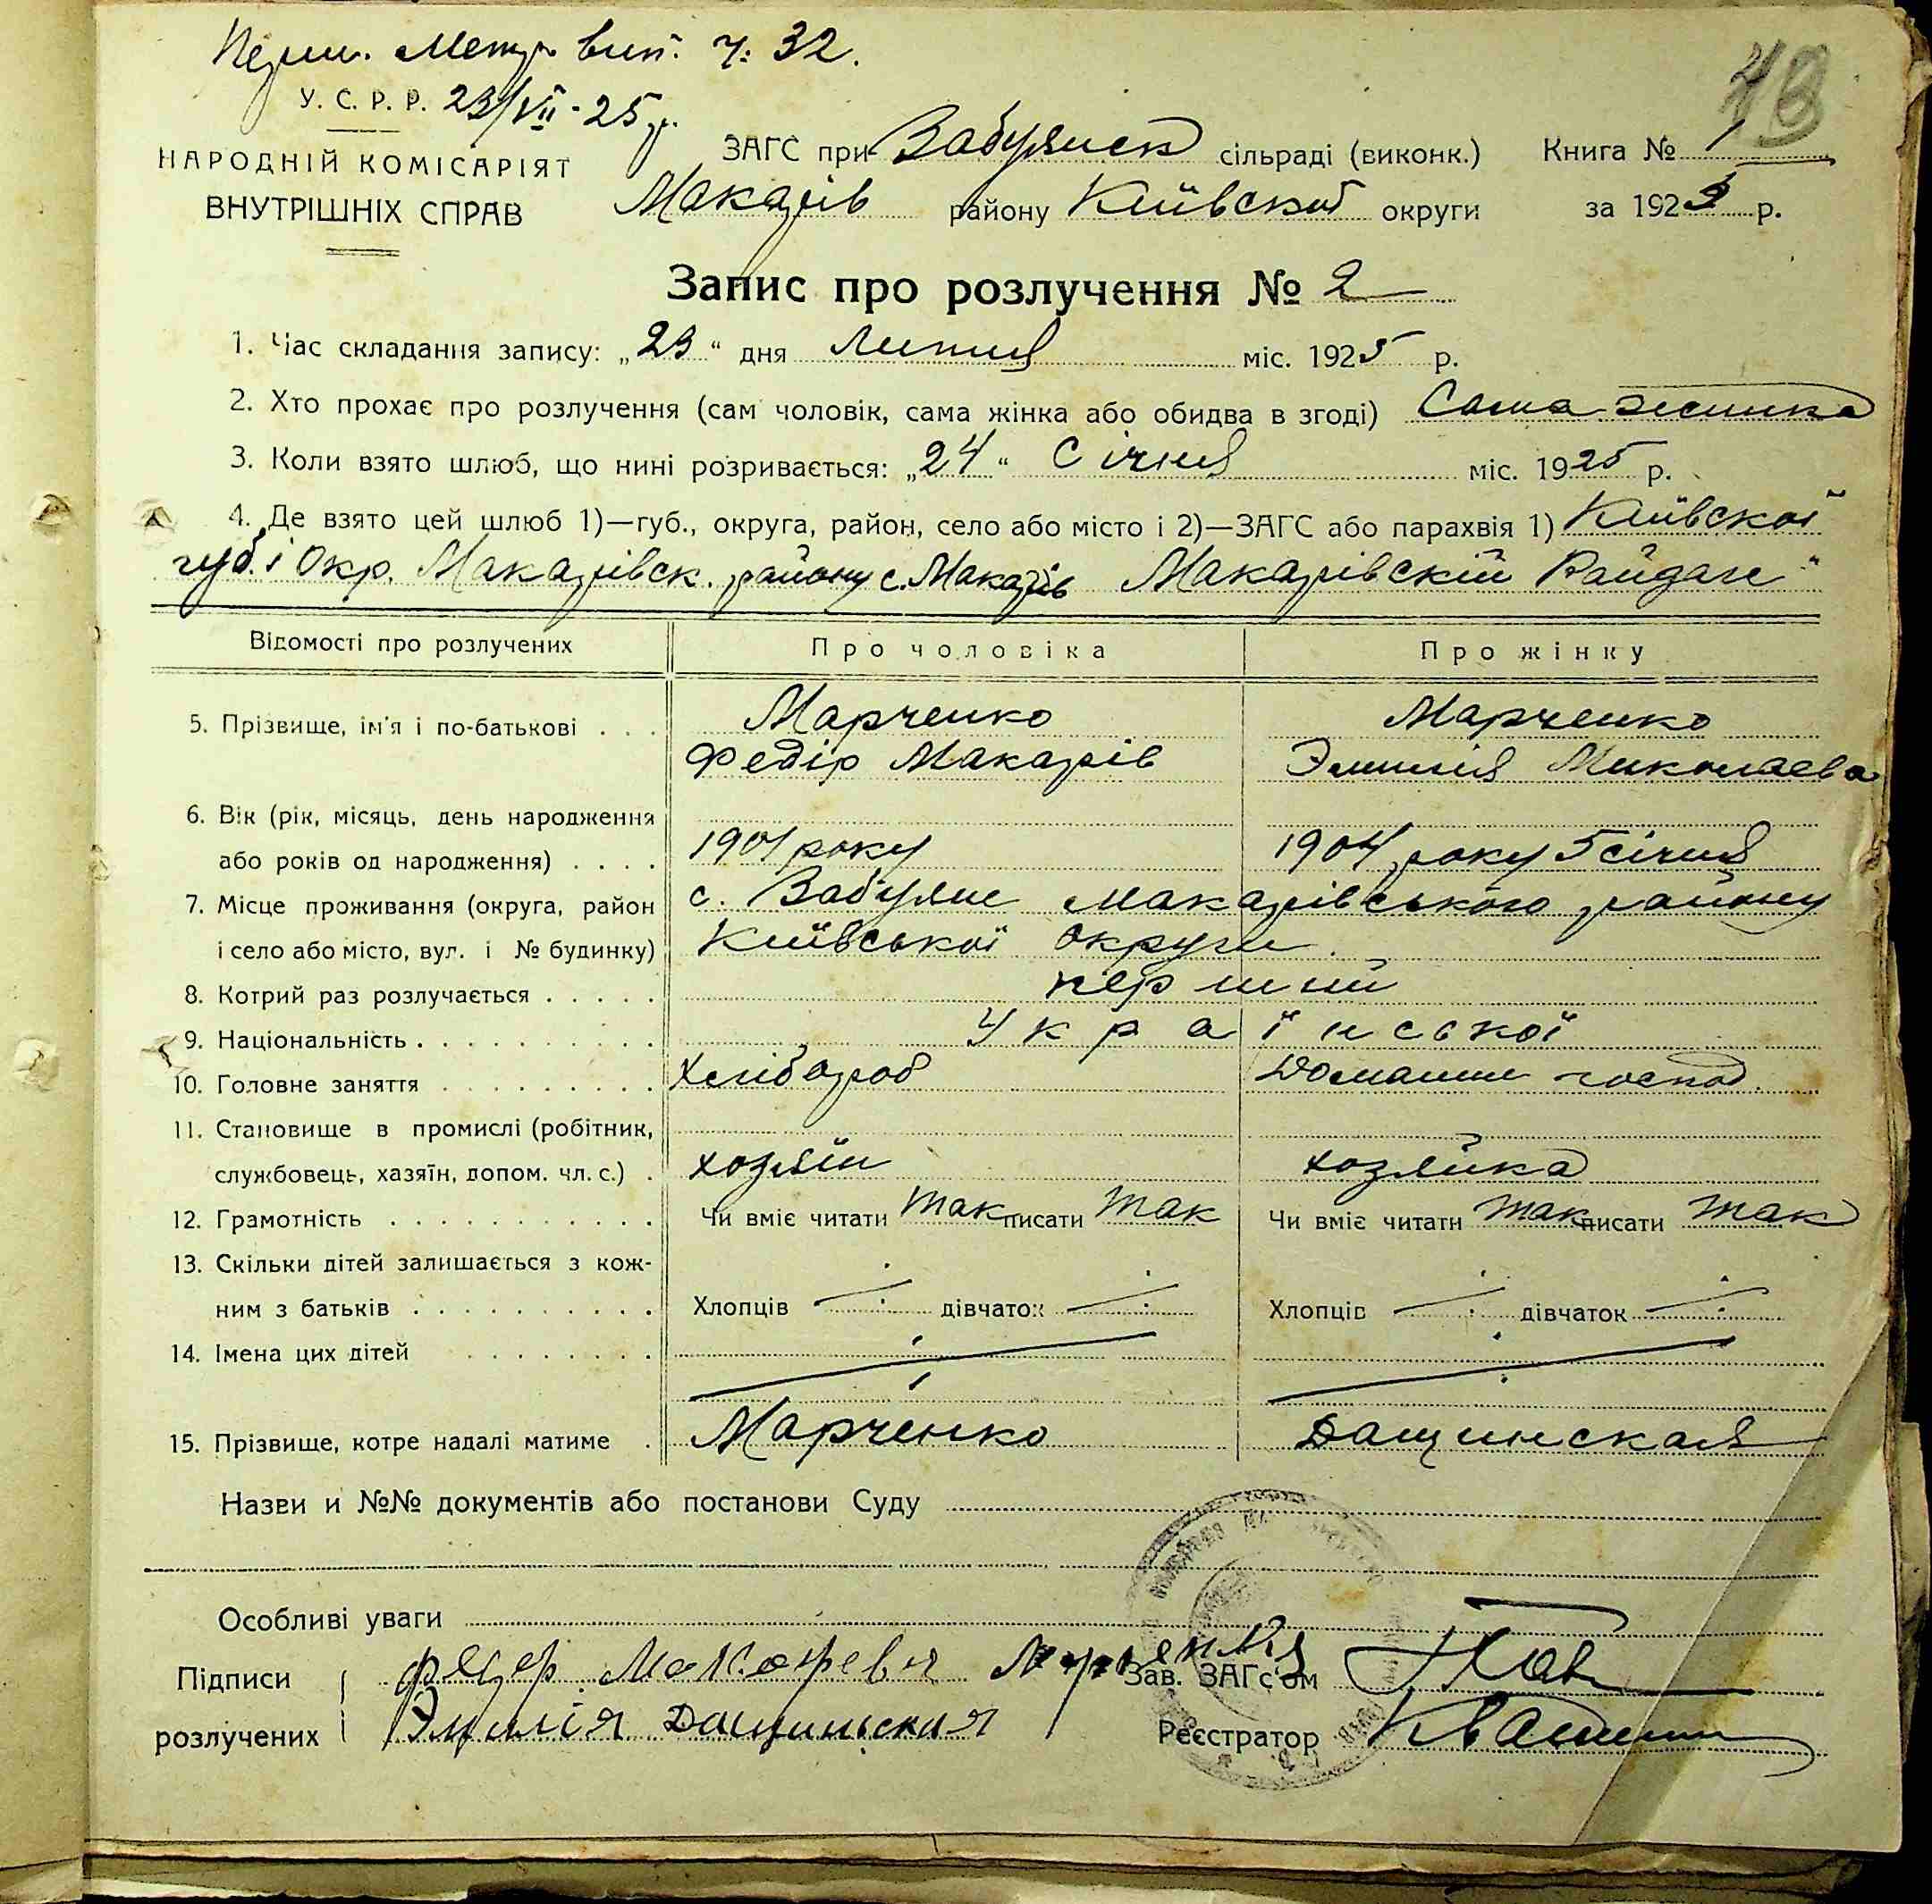 Перш. Метр. вип. ч: 32.
У. С. Р. Р. 23/VII-25 р.
48
НАРОДНІЙ КОМІСАРІЯТ
ВНУТРІШНІХ СПРАВ
ЗАГС при Забуянск сільраді (виконк.) Книга № 1
Макарів району Київської округи за 1925 р.
Запис про розлучення № 2
1. Час складання запису: „23“ дня Липня міс. 1925 р.
2. Хто прохає про розлучення (сам чоловік, сама жінка або обидва в згоді) Сама жинка
3. Коли взято шлюб, що нині розривається: „24“ Січня міс. 1925 р.
4. Де взято цей шлюб 1)—губ., округа, район, село або місто і 2)—ЗАГС або парахвія 1) Київскої
губ. і Окр. Макарівск. району с. Макарів Макарівскій Райзаґс
Відомості про розлучених Про чоловіка Про жінку
5. Прізвище, ім'я і по-батькові . . . Марченко Марченко
Федір Макарів Эмилія Миколаева
6. Вік (рік, місяць, день народження
або років од народження) . . . . 1901 року 1904 року 5 січня
7. Місце проживання (округа, район с. Забуяне Макарівського району
і село або місто, вул. і № будинку) Київської округи
8. Котрий раз розлучається . . . . . перший
9. Національність . . . . . . . . . . Української
10. Головне заняття . . . . . . . . . Хлібороб Домашне господ.
11. Становище в промислі (робітник,
службовець, хазяїн, допом. чл. с.) . хозяїн хозяйка
12. Грамотність . . . . . . . . . . . Чи вміє читати так писати так Чи вміє читати так писати так
13. Скільки дітей залишається з кож-
ним з батьків . . . . . . . . . . Хлопців дівчаток Хлопців дівчаток
14. Імена цих дітей . . . . . . . .
15. Прізвище, котре надалі матиме . Марченко Дащинская
Назви и №№ документів або постанови Суду
Особливі уваги
Підписи Федер Макаревич Зав. ЗАГС'ом
розлучених Эмилія Дащинская Реєстратор